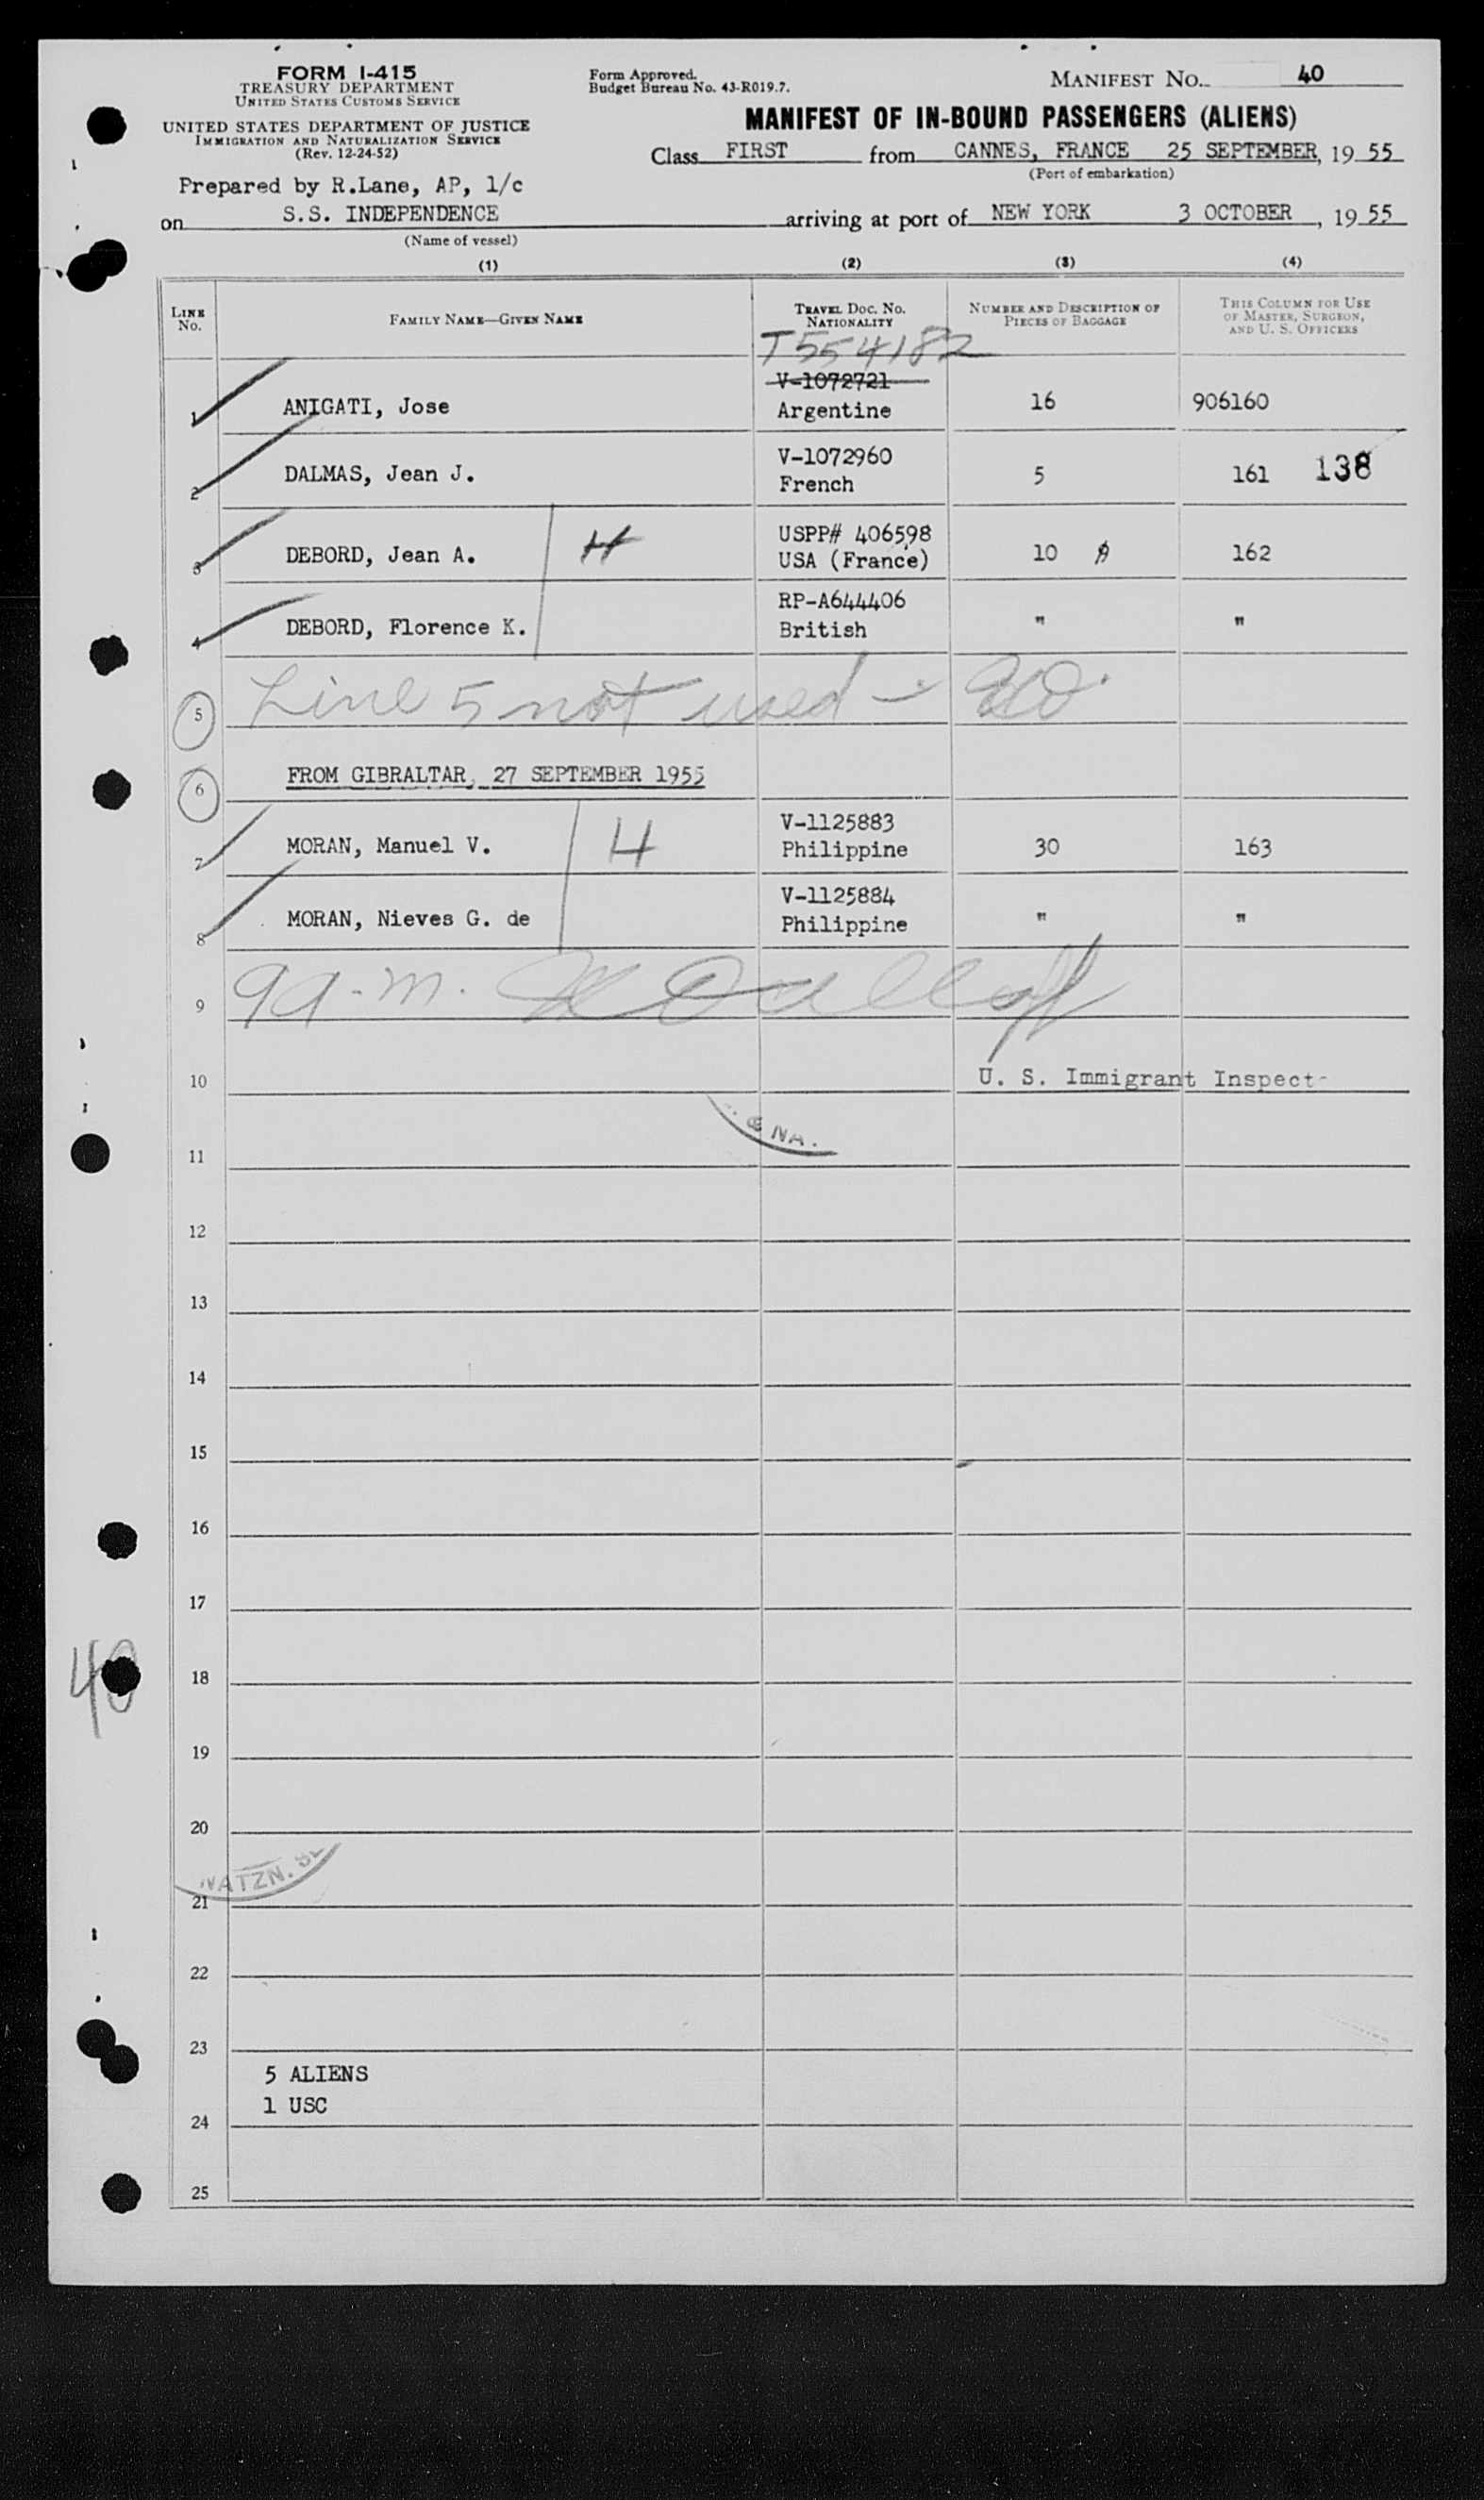 FORM I-415
TREASURY DEPARTMENT
UNITED STATES CUSTOMS SERVICE
UNITED STATES DEPARTMENT OF JUSTICE
IMMIGRATION AND NATURALIZATION SERVICE
(Rev. 12-24-52)
Form Approved.
Budget Bureau No. 43-R019.7.
MANIFEST NO. 40
MANIFEST OF IN-BOUND PASSENGERS (ALIENS)
Class FIRST from CANNES, FRANCE 25 SEPTEMBER, 19 55
(Port of embarkation)
Prepared by R.Lane, AP, 1/c
on S.S. INDEPENDENCE arriving at port of NEW YORK 3 OCTOBER, 19 55
(Name of vessel)
(1) (2) (3) (4)
LINE No. FAMILY NAME—GIVEN NAME TRAVEL DOC. NO. NATIONALITY NUMBER AND DESCRIPTION OF PIECES OF BAGGAGE THIS COLUMN FOR USE OF MASTER, SURGEON, AND U. S. OFFICERS
T554182
V-1072721
1 ANIGATI, Jose Argentine 16 906160
V-1072960
2 DALMAS, Jean J. French 5 161 138
USPP# 406598
3 DEBORD, Jean A. H USA (France) 10 162
RP-A644406
4 DEBORD, Florence K. British " "
5 Line 5 not used -
6 FROM GIBRALTAR, 27 SEPTEMBER 1955
V-1125883
7 MORAN, Manuel V. H Philippine 30 163
V-1125884
8 MORAN, Nieves G. de Philippine " "
9 9 a.m.
10 U. S. Immigrant Inspect
& NA.
11
12
13
14
15
16
17
40
18
19
20
NATZN.
21
22
23
5 ALIENS
1 USC
24
25